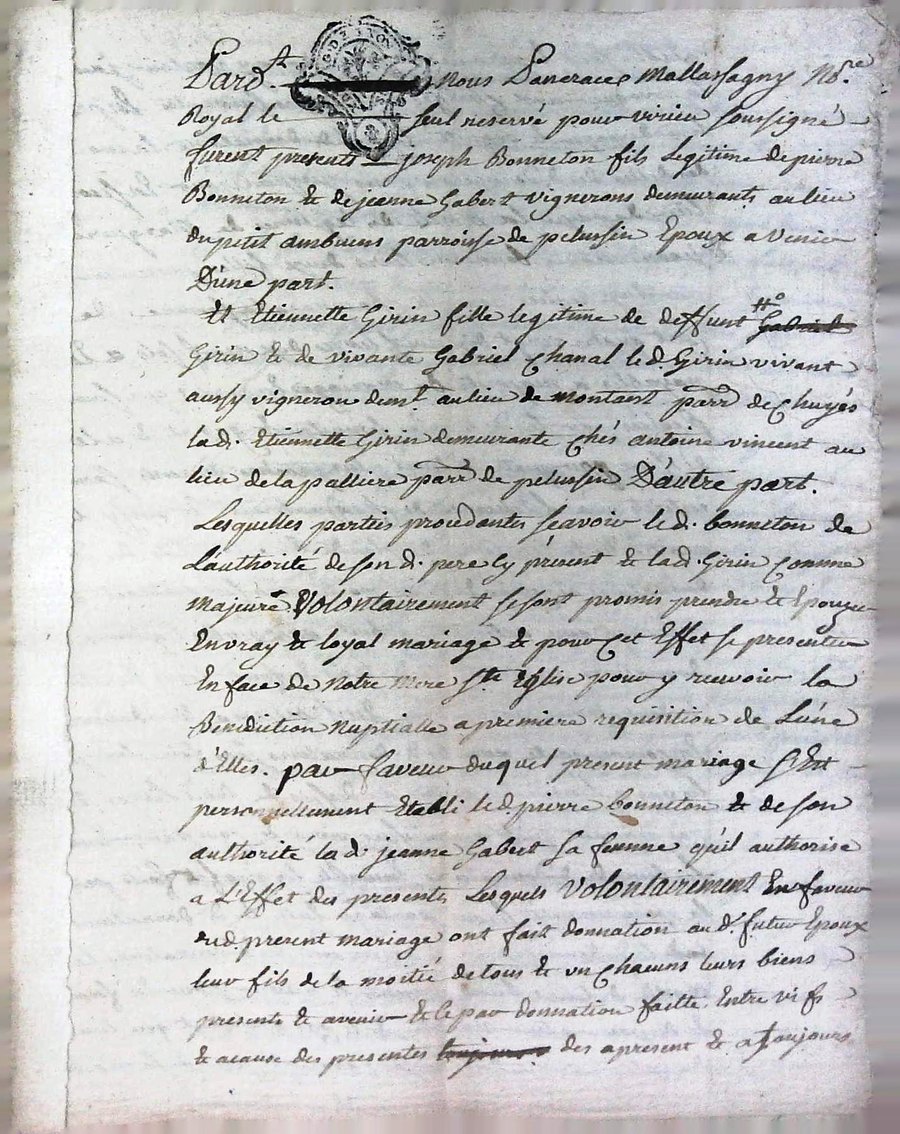 Pard.t nous Pancrace Mallassagny No.re
Royal le seul reservé pour virieu soussigné
furent presents joseph Bonneton fils Legitime de pierre
Bonneton & de jeanne Gabert vignerons demeurants au lieu
du petit ambuens parroisse de pelussin Epoux a Venir
D'une part.
Et Etiennette Girin fille legitime de deffunt # Gabriel
Girin & de vivante Gabriel Chanal le d. Girin vivant
aussy vigneron dem.t au lieu de montant parr. de Chuyés
la d. Etiennette Girin demeurante chés antoine vincent au
lieu de la palliere parr. de pelussin D'autre part.
Lesquelles parties procedantes scavoir le d. bonneton de
L'authorité de son d. pere cy présent & la d. Girin comme
majeure Volontairement se sont promis prendre & Epouzer
En vray & loyal mariage & pour cet Effet se presenter
En face de Notre mere S.te Eglise pour y recevoir la
Benediction Nuptialle a premiere requisition de L'une
d'Elles. par faveur duquel present mariage s'Est
personnellement Etabli le d. pierre bonneton & de son
authorité la d. jeanne Gabert sa femme qu'il authorise
a L'Effet des presentes Lesquels Volontairement En faveur
du d. present mariage ont fait donnation au d. futur Epoux
leur fils de la moitié de tous & un chacuns leurs biens
presents & avenir & le par donnation faitte Entre vifs
& a cause des presentes toujours des apresent & a toujours